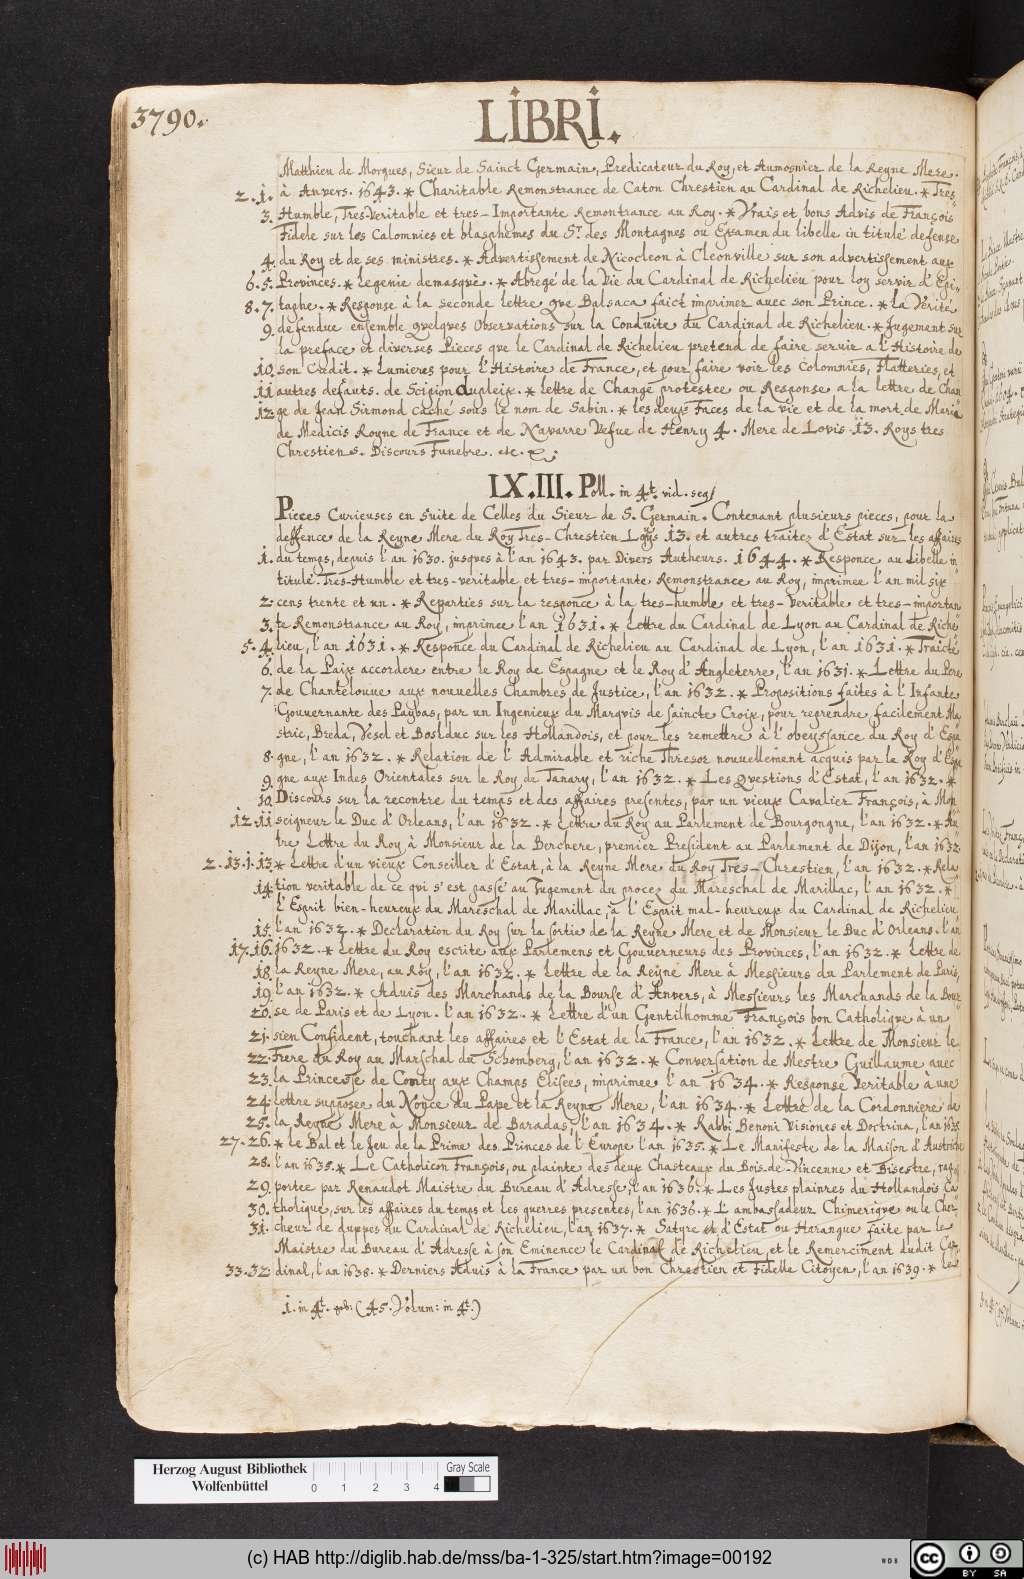 3790.
LIBRI.
Matthieu de Morgues, Sieur de Sainct Germain, Predicateur du Roy, et Aumosnier de la Reyne Mere.
2. 1. à Anvers. 1643. * Charitable Remonstrance de Caton Chrestien au Cardinal de Richelieu. * Tres-
3. Humble, Tres-Veritable et tres-Importante Remontrance au Roy. * Vrais et bons Advis de François
Fidele sur les Calomnies et blasphemes du Sr. des Montagnes ou Examen du libelle in titulé defense
4. du Roy et de ses ministres. * Advertissement de Nicocleon à Cleonville sur son advertissement aux
6. 5. Provinces. * Le genie demasqvè. * Abregé de la Vie du Cardinal de Richelieu pour luy servir d'Epi-
8. 7. taphe. * Response à la seconde lettre qve Balsac a faict imprimer avec son Prince. * La Verité
9. defendue ensemble qvelqves Observations sur la Conduite du Cardinal de Richelieu. * Jugement sur
la preface et diverses Pieces qve le Cardinal de Richelieu pretend de faire servir a l'Histoire de
10. son Credit. * Lumieres pour l'Histoire de France, et pour faire voir les Colomnies, Flatteries, et
11 autres defauts. de Scipion dupleix. * lettre de Change protestee ou Response a la lettre de Chan
12. ge de Jean Sirmond caché sous le nom de Sabin. * les deux Faces de la vie et de la mort de Marie
de Medicis Royne de France et de Navarre Vefue de Henry 4. Mere de Lovis 13. Roys tres
Chrestiens. Discours Funebre. etc.
IX.III. Poll. in 4t. vid. seq
Pieces Curieuses en suite de Celles du Sieur de S. Germain. Contenant plusieurs pieces, pour la
deffence de la Reyne Mere du Roy Tres-Chrestien Loüys 13. et autres traitez d'Estat sur les affaires
1. du temps, depuis l'an 1630. jusqves à l'an 1643. par Divers Autheurs. 1644. * Responce au Libelle in
titulé. Tres-Humble et tres-veritable et tres-importante Remonstrance au Roy, imprimee l'an mil six
2. cens trente et un. * Reparties sur la responce à la tres-humble et tres-veritable et tres-importan
3. te Remonstrance au Roy, imprimee l'an 1631. * Lettre du Cardinal de Lyon au Cardinal de Riche
5. 4. lieu, l'an 1631. * Responce du Cardinal de Richelieu au Cardinal de Lyon, l'an 1631. * Traicté
6. de la Paix accordere entre le Roy de Espagne et le Roy d'Angleterre, l'an 1631. * Lettre du Pere
7 de Chantelouve aux nouvelles Chambres de Justice, l'an 1632. * Propositions faites à l'Infante
Gouvernante des Paybas, par un Ingenieux du Marqvis de saincte Croix, pour reprendre facilement Ma
stric, Breda, Vesel et Bosldvc sur les Hollandois, et pour les remettre à l'obeyssance du Roy d'Espa
8. gne, l'an 1632. * Relation de l'Admirable et riche Thresor nouvellement acquis par le Roy d'Espa
9. gne aux Indes Orientales sur le Roy de Tanary, l'an 1632. * Les Qvestions d'Estat, l'an 1632. *
10. Discours sur la recontre du temps et des affaires presentes, par un vieux Cavalier François, a Mon
12. 11 seigneur le Duc d'Orleans, l'an 1632. * Lettre du Roy au Parlement de Bourgongne, l'an 1632. * Au
tre Lettre du Roy à Monsieur de la Berchere, premier President au Parlement de Dijon, l'an 1632
2. 13. 1. 13 * Lettre d'un vieux Conseiller d'Estat, à la Reyne Mere du Roy Tres-Chrestien, l'an 1632. * Rela
14. tion veritable de ce qvi s'est passé au Jugement du procez du Mareschal de Marillac, l'an 1632. *
l'Esprit bien-heureux du Mareschal de Marillac, à l'Esprit mal-heureux du Cardinal de Richelieu
15. l'an 1632. * Declaration du Roy sur la sortie de la Reyne Mere et de Monsieur le Duc d'Orleans. l'an
17. 16. 1632. * Lettre du Roy escrite aux Parlemens et Gouverneurs des Provinces, l'an 1632. * Lettre de
18. la Reyne Mere, au Roy, l'an 1632. * Lettre de la Reyne Mere à Messieurs du Parlement de Paris,
19. l'an 1632. * Aduis des Marchands de la Bourse d'Anvers, à Messieurs les Marchands de la Bour
20. se de Paris et de Lyon. l'an 1632. * Lettre d'un Gentilhomme François bon Catholiqve à un
21. sien Confident, touchant les affaires et l'Estat de la France, l'an 1632. * Lettre de Monsieur le
22. Frere du Roy au Marschal du Schomberg, l'an 1632. * Conversation de Mestre Guillaume avec
23. la Princesse de Conty aux Champs Elisees, imprimee l'an 1634. * Response Veritable à une
24. lettre supposee du Nonce du Pape et la Reyne Mere, l'an 1634. * Lettre de la Cordonniere de
25. la Reyne Mere à Monsieur de Baradas, l'an 1634. * Rabbi Benoni Visiones et Doctrina, l'an 1635.
27. 26. * le Bal et le Jeu de la Prime des Princes de l'Europe l'an 1635. * Le Manifeste de la Maison d'Austriche
28. l'an 1635. * Le Catholicon François, ou plainte des deux Chasteaux du Bois-de-Vincenne et Bisestre, rap
29. portee par Renaudot Maistre du Bureau d'Adresse, l'an 1636. * Les Justes plainres du Hollandois Ca
30. tholique, sur les affaires du temps et les guerres presentes, l'an 1636. * L'ambassadeur Chimeriqve ou le Cher
31. cheur de duppes du Cardinal de Richelieu, l'an 1637. * Satyre d'Estat ou Harangue faite par le
Maistre du Bureau d'Adresse à son Eminence le Cardinal de Richelieu, et le Remerciment dudit Car
33. 32 dinal, l'an 1638. * Derniers Aduis à la France par un bon Chrestien et Fidelle Citoyen, l'an 1639. * Le
1. in 4t. (45. Volum: in 4t.)
Herzog August Bibliothek
Wolfenbüttel
0 1 2 3 4
Gray Scale
(c) HAB http://diglib.hab.de/mss/ba-1-325/start.htm?image=00192
WDB
cc BY SA